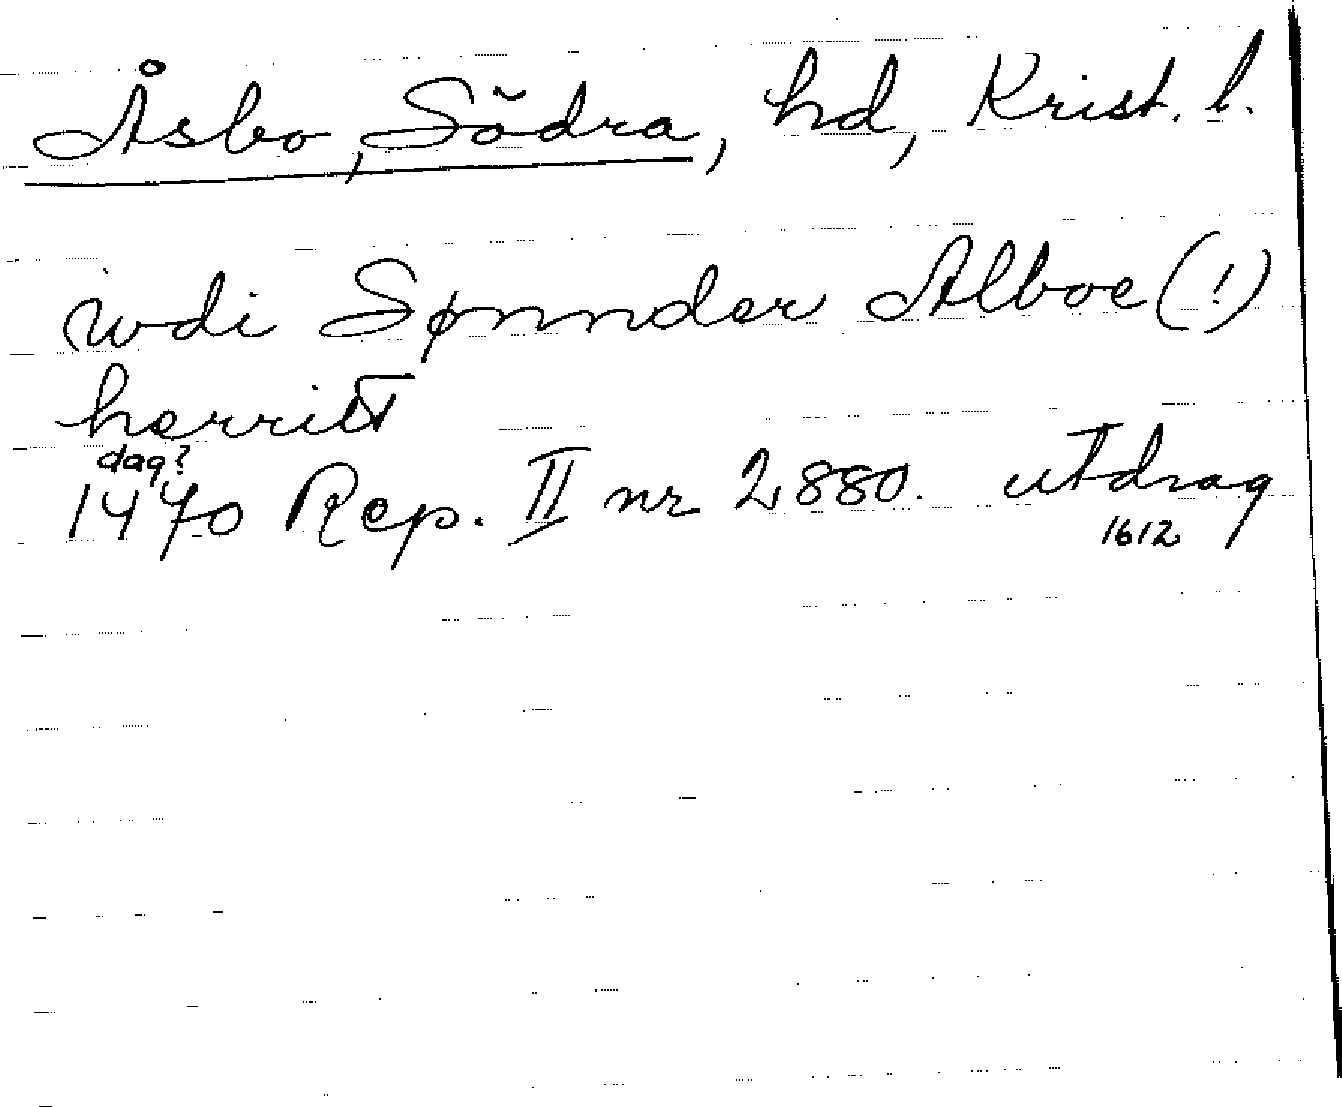 Åsbo, Södra, hd, Krist. l.
wdi Sønnder Alboe (!)
herritt
dag?
1470 Rep. II nr 2880. utdrag
1612